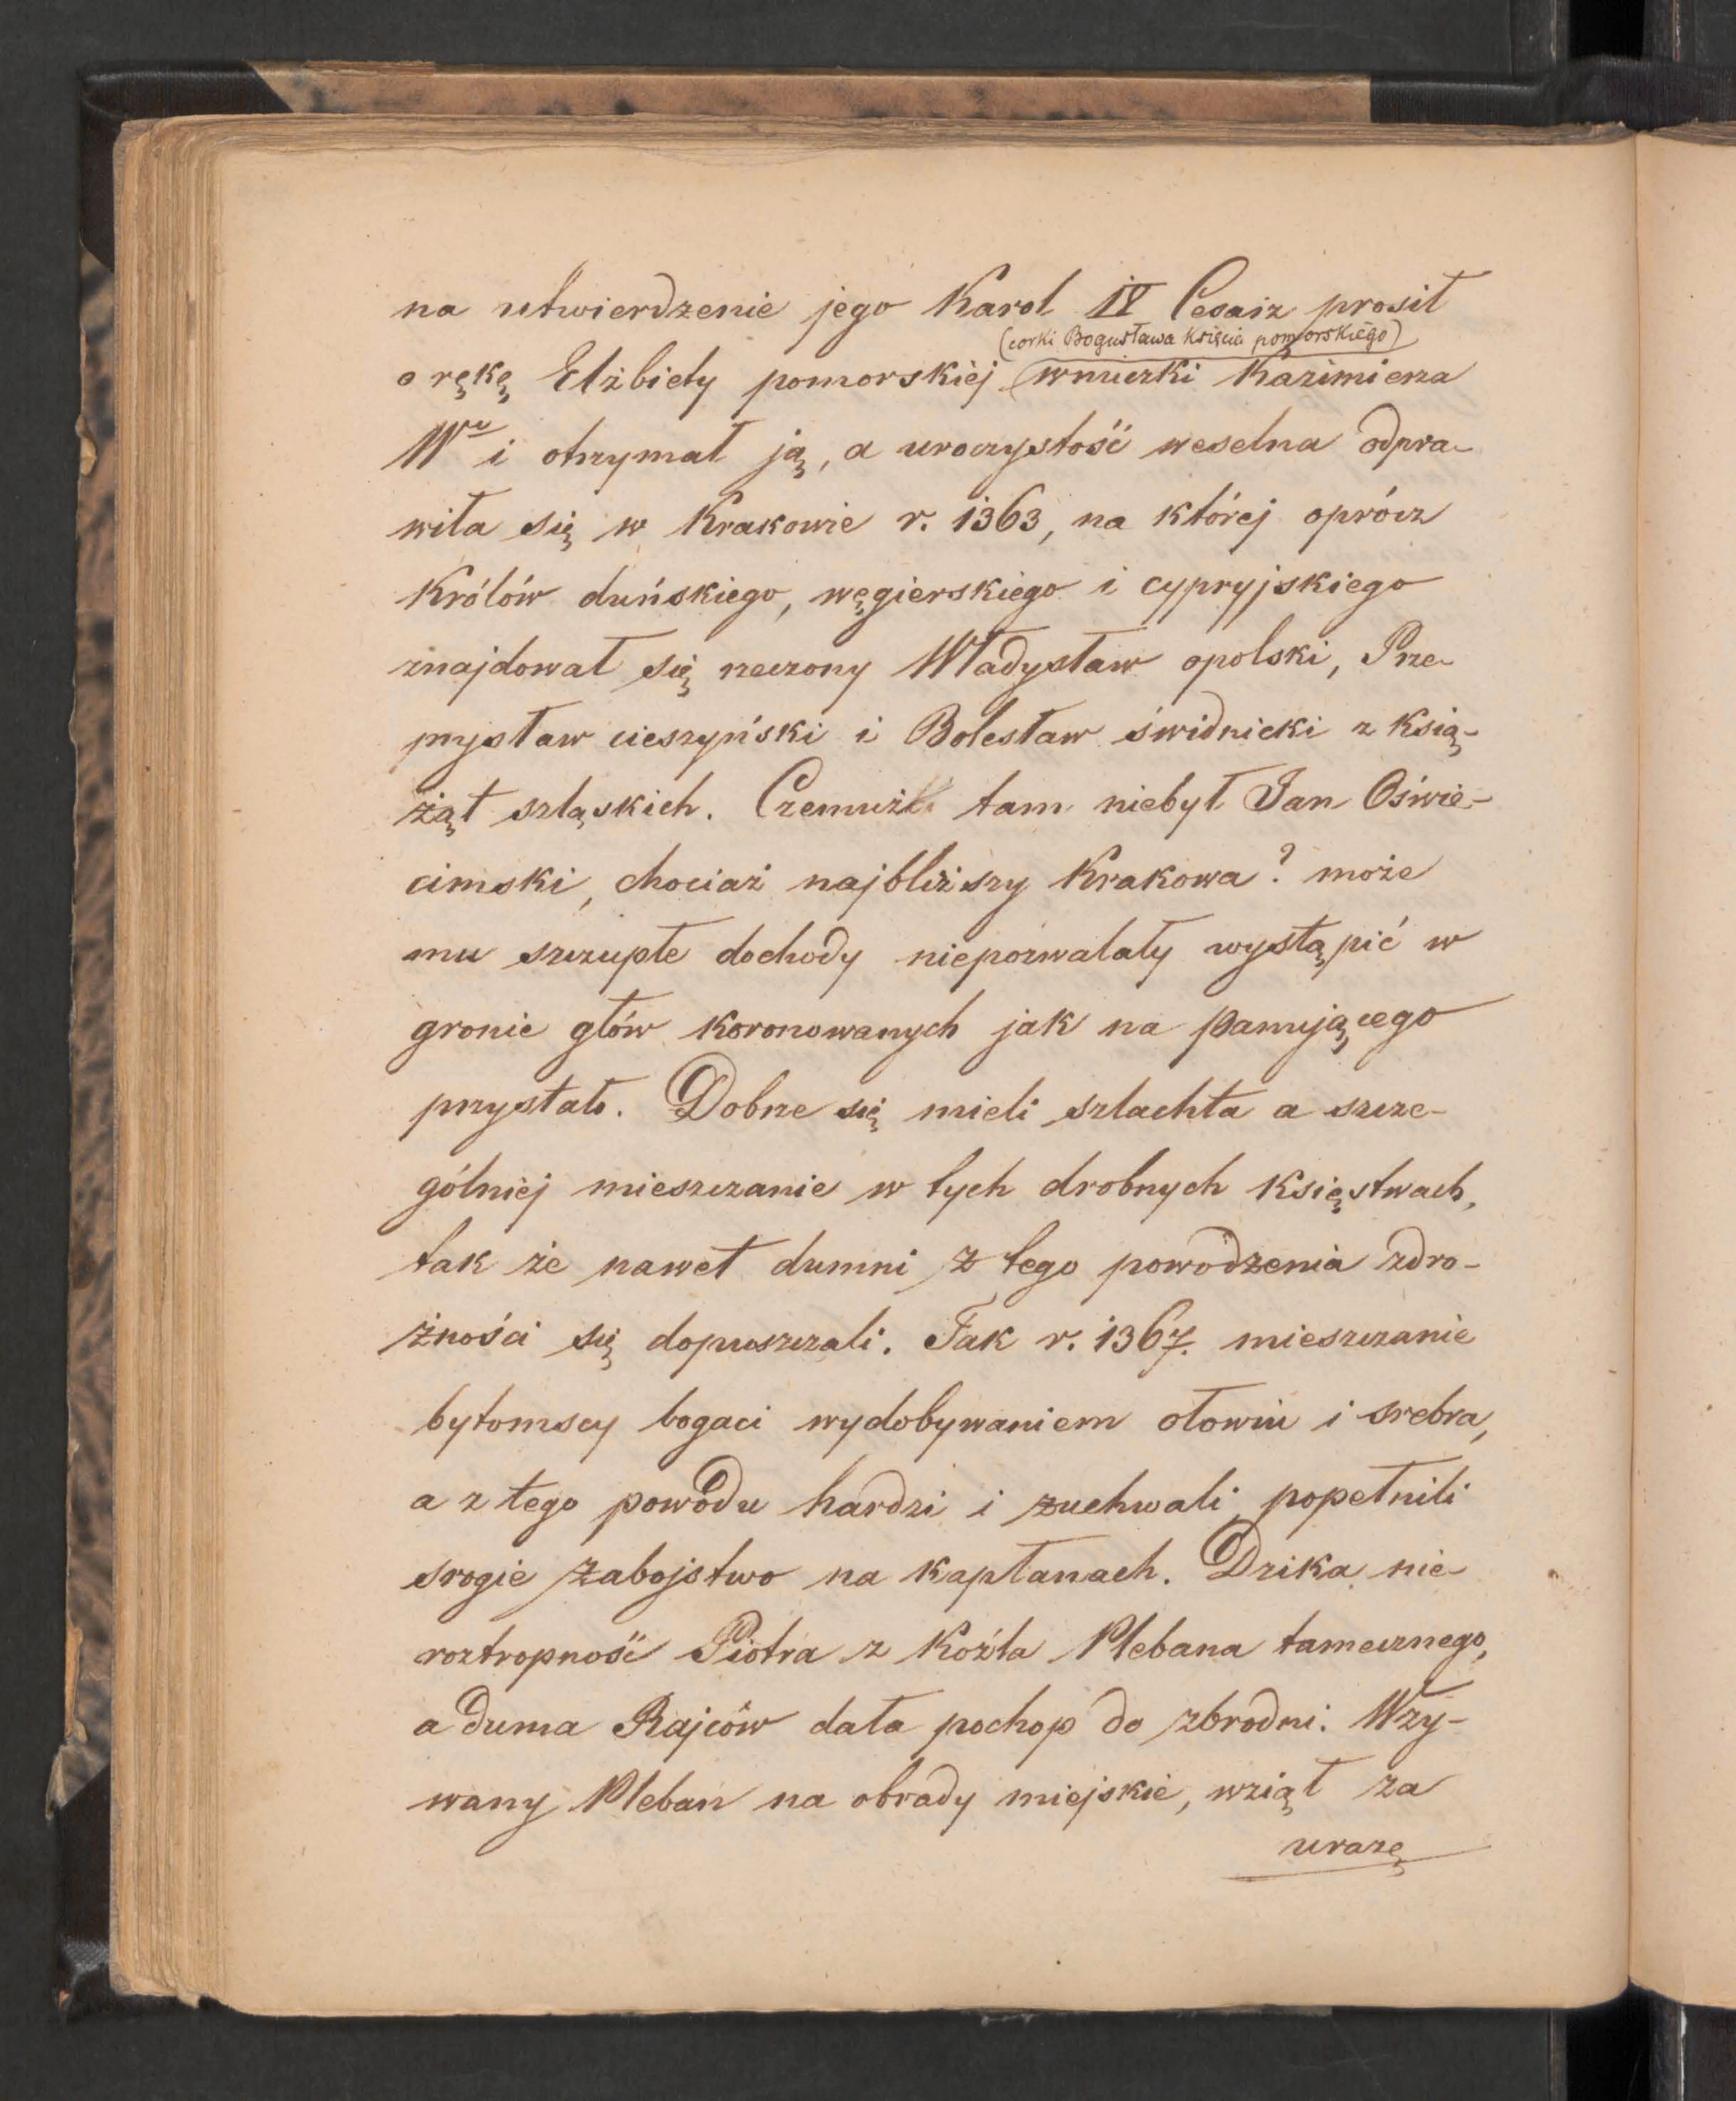 na utwierdzenie jego Karol IV Cesarz prosił
(corki Bogusława Księcia pomorskiego)
o rękę Elżbiety pomorskiéj wnuczki Kazimierza
Wu i otrzymał ją, a uroczystość weselna odpra-
wiła się w Krakowie r. 1363, na której oprócz
Królów duńskiego, węgierskiego i cypryjskiego
znajdował się rzeczony Władysław opolski, Prze-
mysław cieszyński i Bolesław świdnicki z ksią-
żąt szląskich. Czemuż tam niebył Jan Oświe-
cimski, chociaż najbliższy Krakowa? może
mu szczupłe dochody niepozwalały wystąpić w
gronie głów koronowanych jak na panującego
przystało. Dobrze się mieli szlachta a szcze-
gólniej mieszczanie w tych drobnych Księstwach,
tak że nawet dumni z tego powodzenia zdro-
żności się dopuszczali. Tak r. 1367. mieszczanie
bytomscy bogaci wydobywaniem ołowiu i srebra,
a z tego powodu hardzi i zuchwali popełnili
srogie zabojstwo na kapłanach. Dzika nie-
roztropność Piotra z Koźla Plebana tamecznego,
a duma Rajców dała pochop do zbrodni. Wzy-
wany Pleban na obrady miejskie, wziął za
urazę